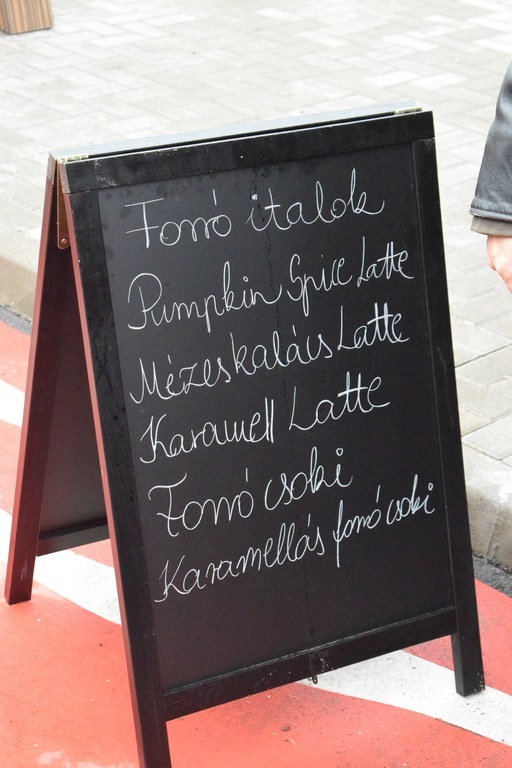 Forró italok
Pumpkin Spice Latte
Mézeskalács Latte
Karamell Latte
Forró csoki
Karamellás forró csoki